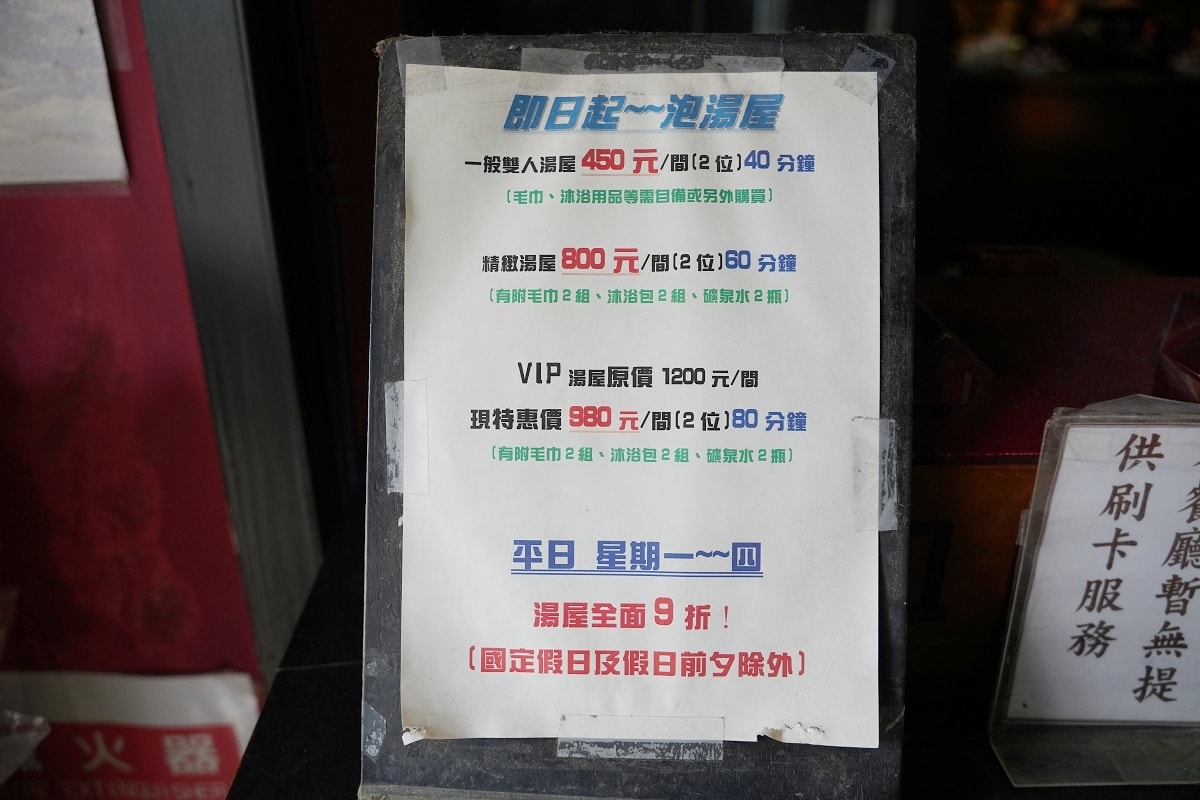 即日起~~泡湯屋
一般雙人湯屋450元/間(2位)40分鐘
(毛巾、沐浴用品等需自備或另外購買)
精緻湯屋800元/間(2位)60分鐘
(有附毛巾2組、沐浴包2組、礦泉水2瓶)
VIP湯屋原價1200元/間
現特惠價980元/間(2位)80分鐘
(有附毛巾2組、沐浴包2組、礦泉水2瓶)
平日 星期一~~四
湯屋全面9折!
(國定假日及假日前夕除外)
餐廳暫無提
供刷卡服務
火器
EXTINGUISHER